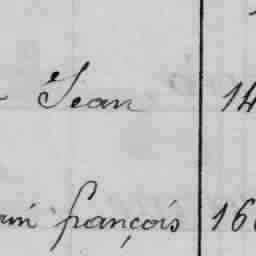 Jean 14
françois 16